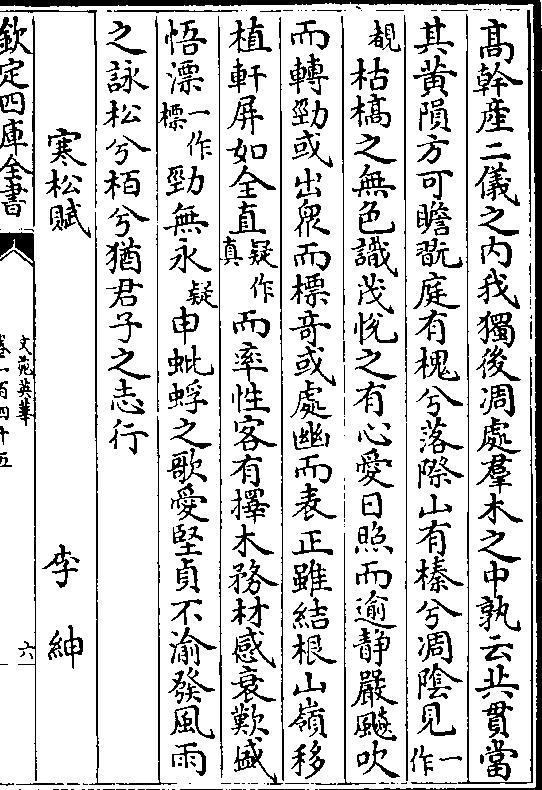 髙幹産二儀之内我獨後凋處羣木之中孰云共貫當
其黄隕方可瞻翫庭有槐兮落際山有榛兮凋陰見一作
覩枯槁之無色識茂恱之有心愛日照而逾静嚴飈吹
而轉勁或出衆而標竒或處幽而表正雖結根山嶺移
植軒屏如全直疑作真而率性客有擇木務材感衰歎盛
悟漂一作標勁無永疑申蚍蜉之歌愛堅貞不渝發風雨
之詠松兮栢兮猶君子之志行
寒松賦 李紳
欽定四庫全書
文苑英華
卷一百四十五
六